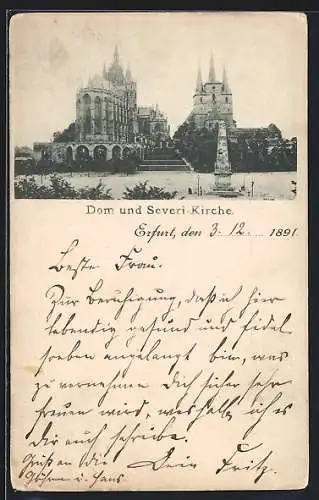 Dom und Severi-Kirche.
Erfurt, den 3. 12. 1891
Beste Frau.
Zur Beruhigung, daß ich hier
lebendig gesund und fidel
soeben angelangt bin, was
zu vernehmen Dich sicher sehr
freuen wird, weshalb ich es
Dir auch schreibe.
Gruß an die Dein Fritz.
u. Hans